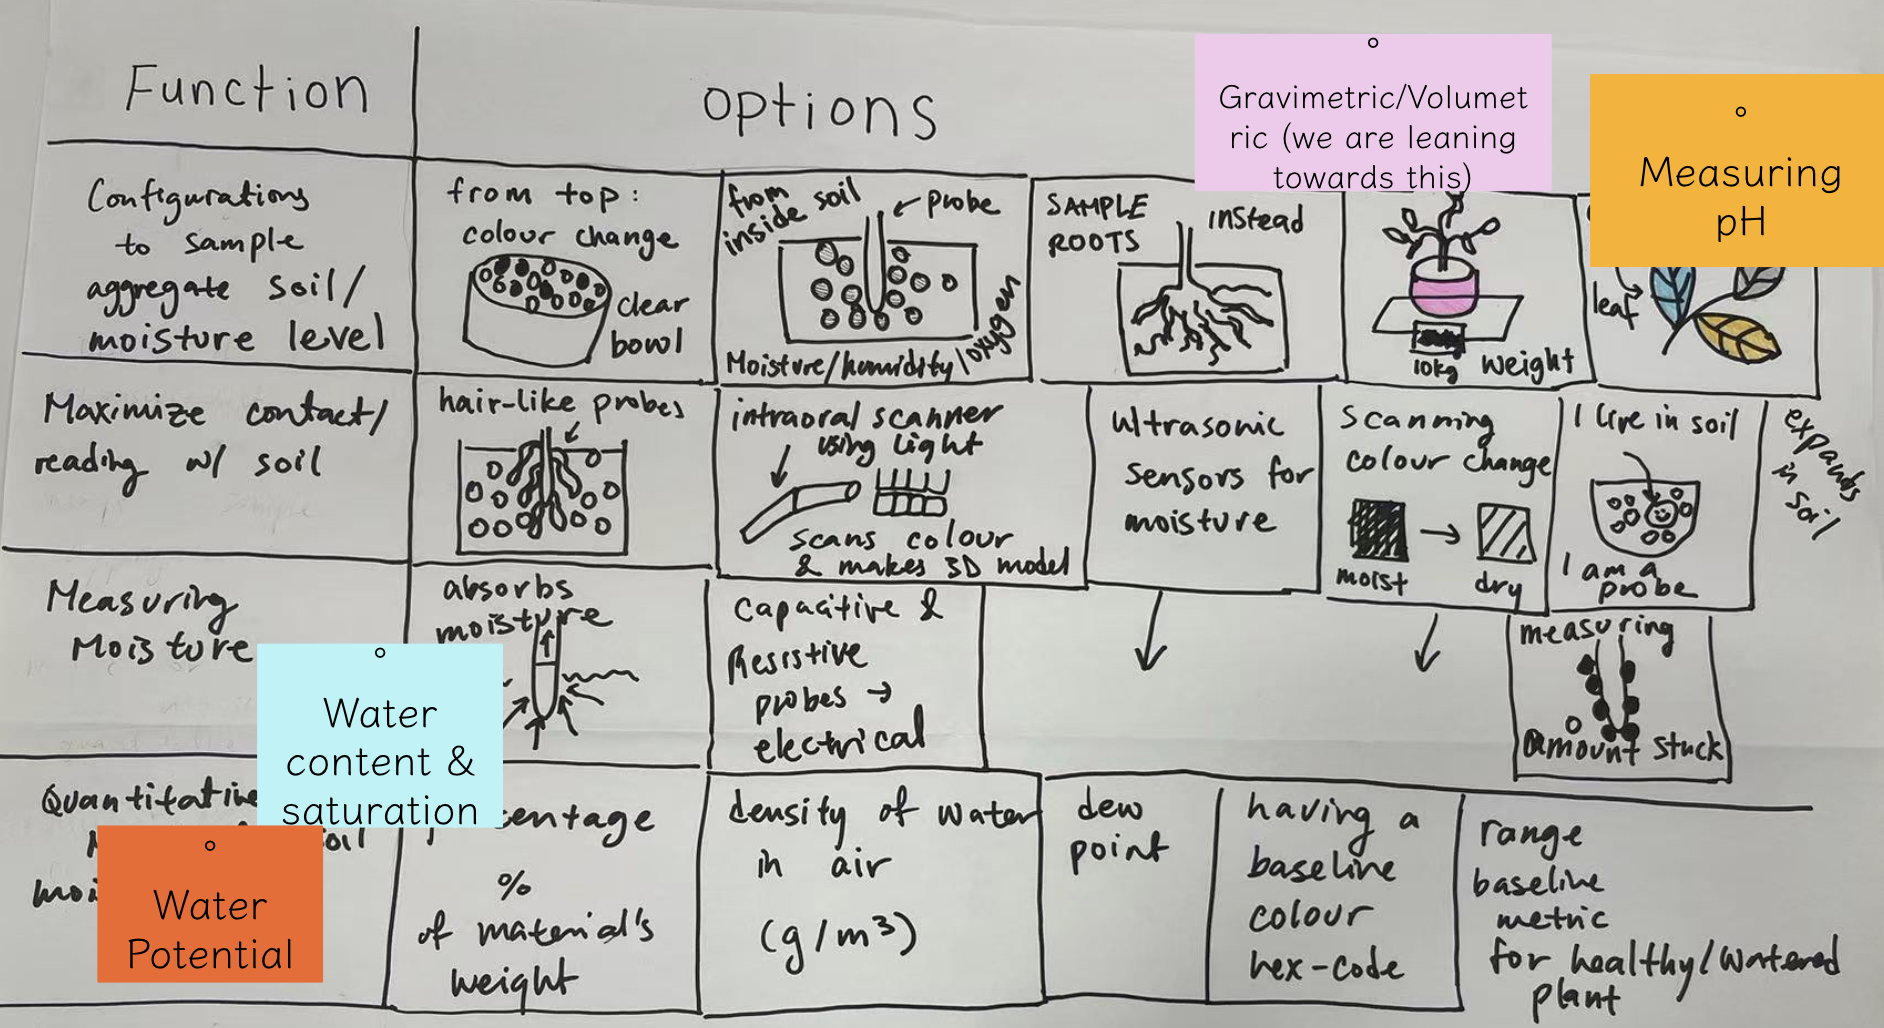 Function
Options
Gravimetric/Volumet
ric (we are leaning
towards this)
Measuring
pH
Configurations
to sample
aggregate soil/
moisture level
from top:
colour change
clear
bowl
from
inside soil
probe
Moisture/humidity/oxygen
SAMPLE
ROOTS
instead
10kg
weight
leaf
Maximize contact/
reading w/ soil
hair-like probes
intraoral scanner
using light
scans colour
& makes 3D model
ultrasonic
sensors for
moisture
Scanning
colour change
moist
dry
I live in soil
I am a
probe
expands
in soil
Measuring
Moisture
absorbs
moisture
Capacitive &
Resistive
probes →
electrical
measuring
amount stuck
Water
content &
saturation
Quantitative
soil
Water
Potential
%
of material's
weight
density of water
in air
(g/m³)
dew
point
having a
baseline
colour
hex-code
range
baseline
metric
for healthy/watered
plant